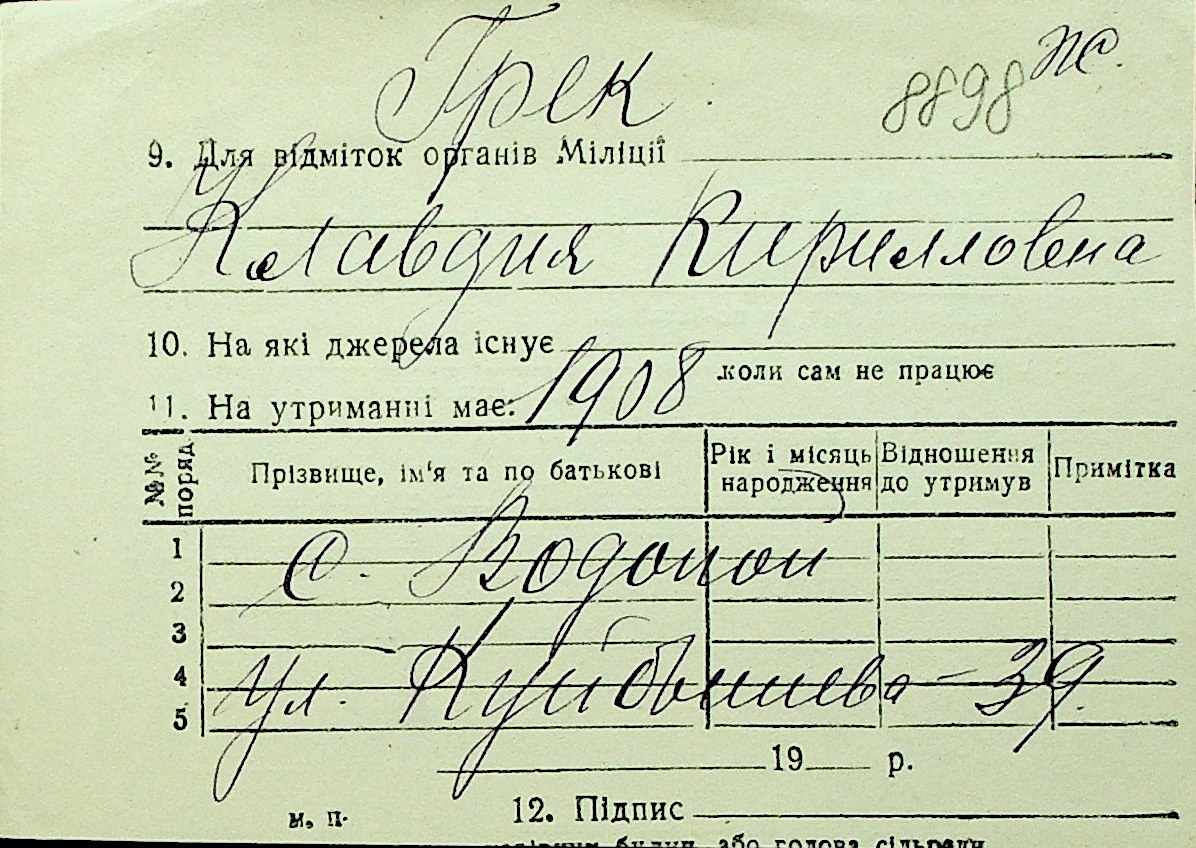 Грек
8898 ж.
9. Для відміток органів Міліції
Клавдия Кирилловна
10. На які джерела існує
коли сам не працює
11. На утриманні має:
1908
№№ поряд
Прізвище, ім'я та по батькові
Рік і місяць народження
Відношення до утримув
Примітка
1
с. Водопой
2
3
4
ул. Куйбышева - 39
5
19 р.
м. п.
12. Підпис
будин. або голова сільради